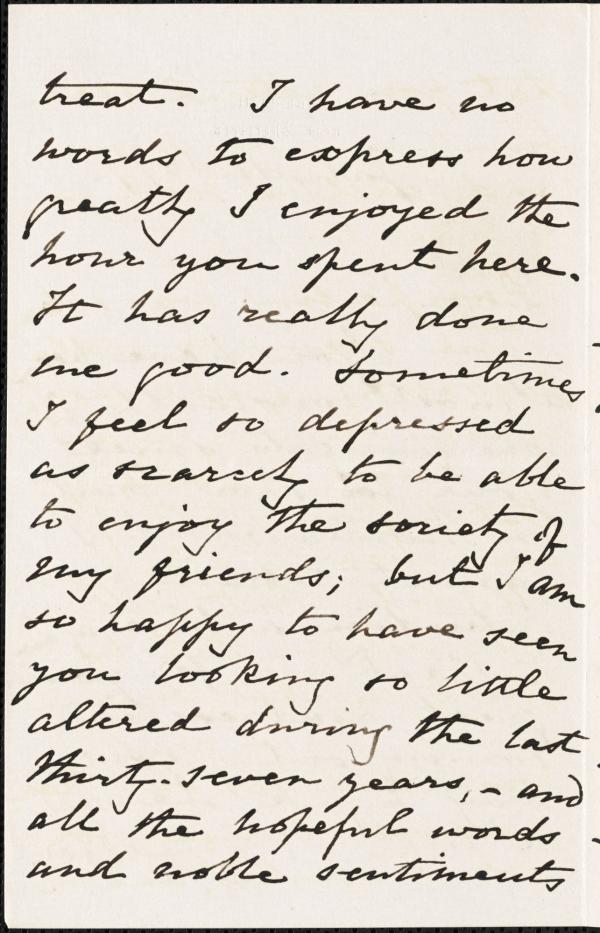 treat. I have no
words to express how
greatly I enjoyed the
hour you spent here.
It has really done
me good. Sometimes
I feel so depressed
as scarcely to be able
to enjoy the society of
my friends; but I am
so happy to have seen
you looking so little
altered during the last
thirty-seven years, - and
all the hopeful words
and noble sentiments